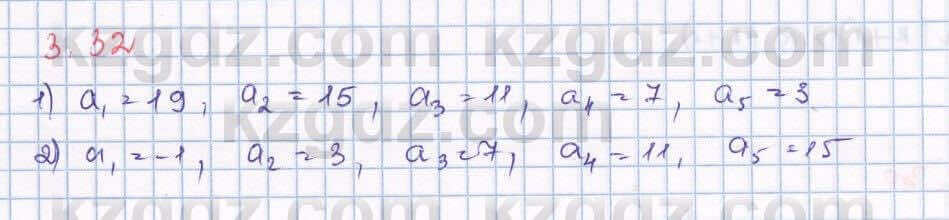 3.32
1) a₁ = 19, a₂ = 15, a₃ = 11, a₄ = 7, a₅ = 3
2) a₁ = -1, a₂ = 3, a₃ = 7, a₄ = 11, a₅ = 15
kzgdz.com kzgdz.com
kzgdz.com